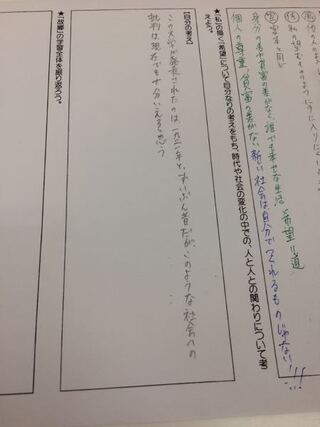 私の望むものはすぐに手に入りにくい
宮 宮本と同じ
身分の差や貧富の差がなく、誰でも幸せな生活 希望=道
個人の尊重 貧富の差がない新しい社会は自分でつくれるものじゃない!!!
★「私」の描く「希望」について自分なりの考えをもち、時代や社会の変化の中での、人と人との関わりについて考えよう。
【自分の考え】
この文学が発表されたのは一九二一年と、ずいぶん昔だが、このような社会への
批判は現在でも十分いえると思う
★「故郷」の学習全体を振り返ろう。